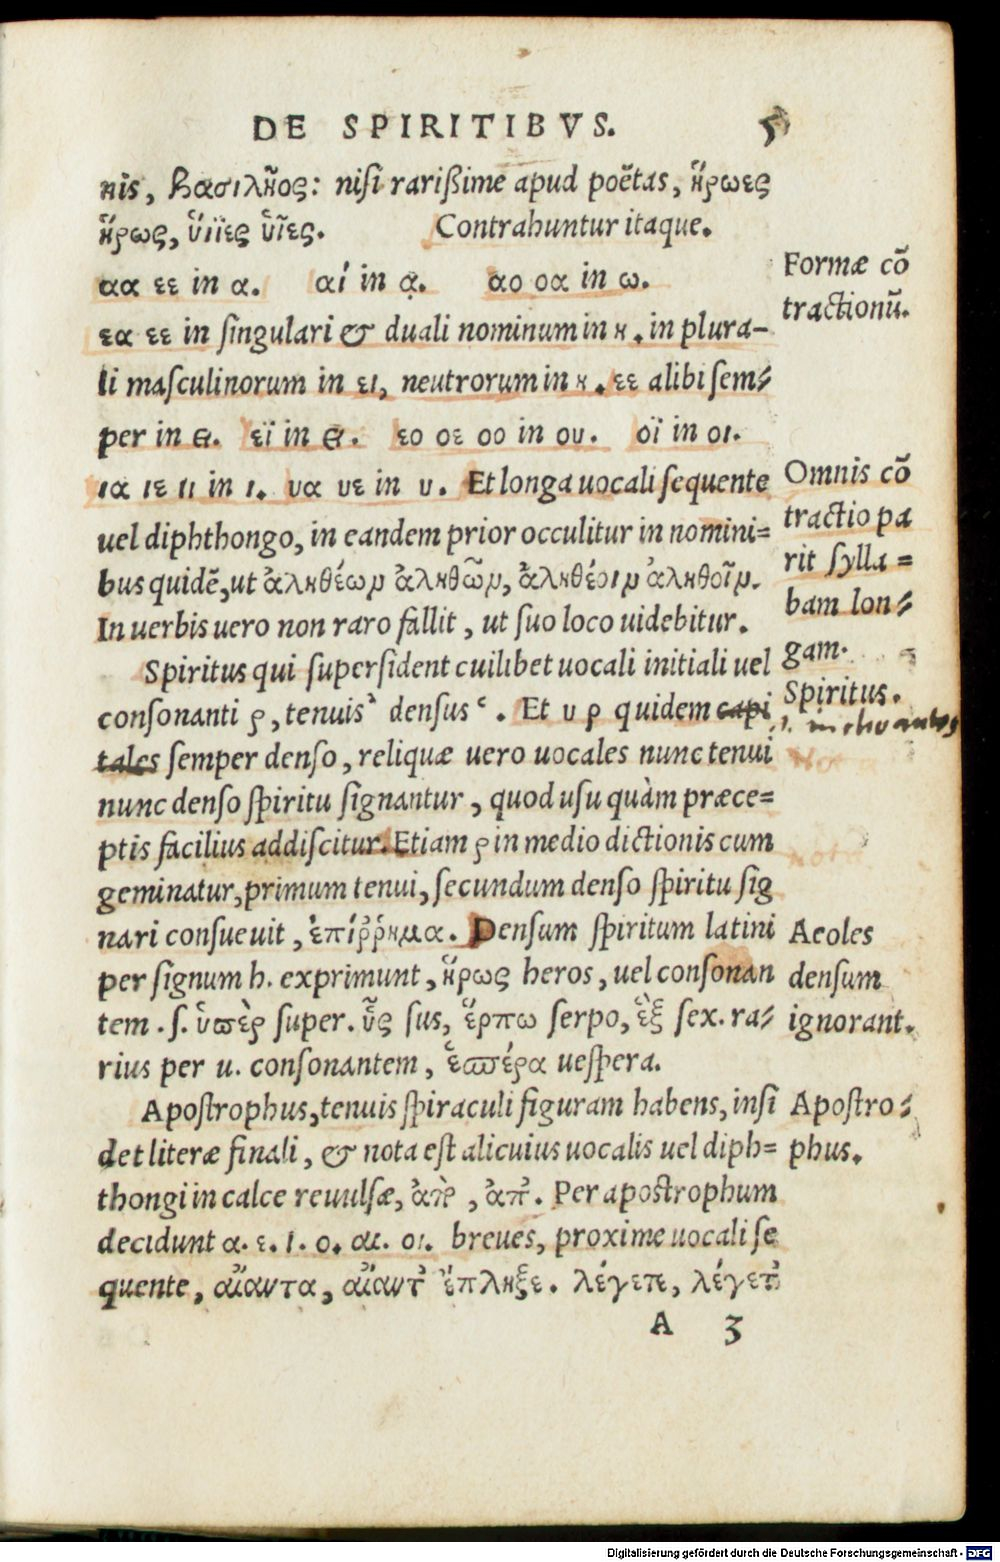 DE SPIRITIBVS. 5
nis, βασιλῆος: nisi rarißime apud poëtas, ἥρωες
ἥρως, ὕϊες ὗες. Contrahuntur itaque.
αα εε in α. αΐ in ᾳ. αο οα in ω.
εα εε in singulari & duali nominum in η. in plura-
li masculinorum in ει, neutrorum in η. εε alibi sem=
per in ει. εϊ in ει. εο οε οο in ου. οϊ in οι.
ια ιε ιι in ι. υα υε in υ. Et longa uocali sequente
uel diphthongo, in eandem prior occulitur in nomini=
bus quidē, ut ἀληθέων ἀληθῶν, ἀληθέοιν ἀληθοῖν.
In uerbis uero non raro fallit, ut suo loco uidebitur.
Spiritus qui supersident cuilibet uocali initiali uel
consonanti ρ, tenuis ᾿ densus ῾. Et υ ρ quidem capi
tales semper denso, reliquæ uero uocales nunc tenui
nunc denso spiritu signantur, quod usu quàm præce=
ptis facilius addiscitur. Etiam ρ in medio dictionis cum
geminatur, primum tenui, secundum denso spiritu sig
nari consueuit, ἐπίῤῥημα. Densum spiritum latini
per signum h. exprimunt, ἥρως heros, uel consonan
tem .s. ὑπὲρ super. ὗς sus, ἕρπω serpo, ἓξ sex. ra=
rius per u. consonantem, ἑσπέρα uespera.
Apostrophus, tenuis spiraculi figuram habens, insi
det literæ finali, & nota est alicuius uocalis uel diph=
thongi in calce reuulsæ, ἀπὸ, ἀπ᾿. Per apostrophum
decidunt α. ε. ι. ο. αι. οι. breues, proxime uocali se
quente, αἴαντα, αἴαντ᾿ ἔπληξε. λέγετε, λέγετ᾿
A 3
Formæ cō
tractionū.
Omnis cō
tractio pa
rit sylla=
bam lon=
gam.
Spiritus.
Nota
Nota
Aeoles
densum
ignorant.
Apostro=
phus.
Digitalisierung gefördert durch die Deutsche Forschungsgemeinschaft - DFG